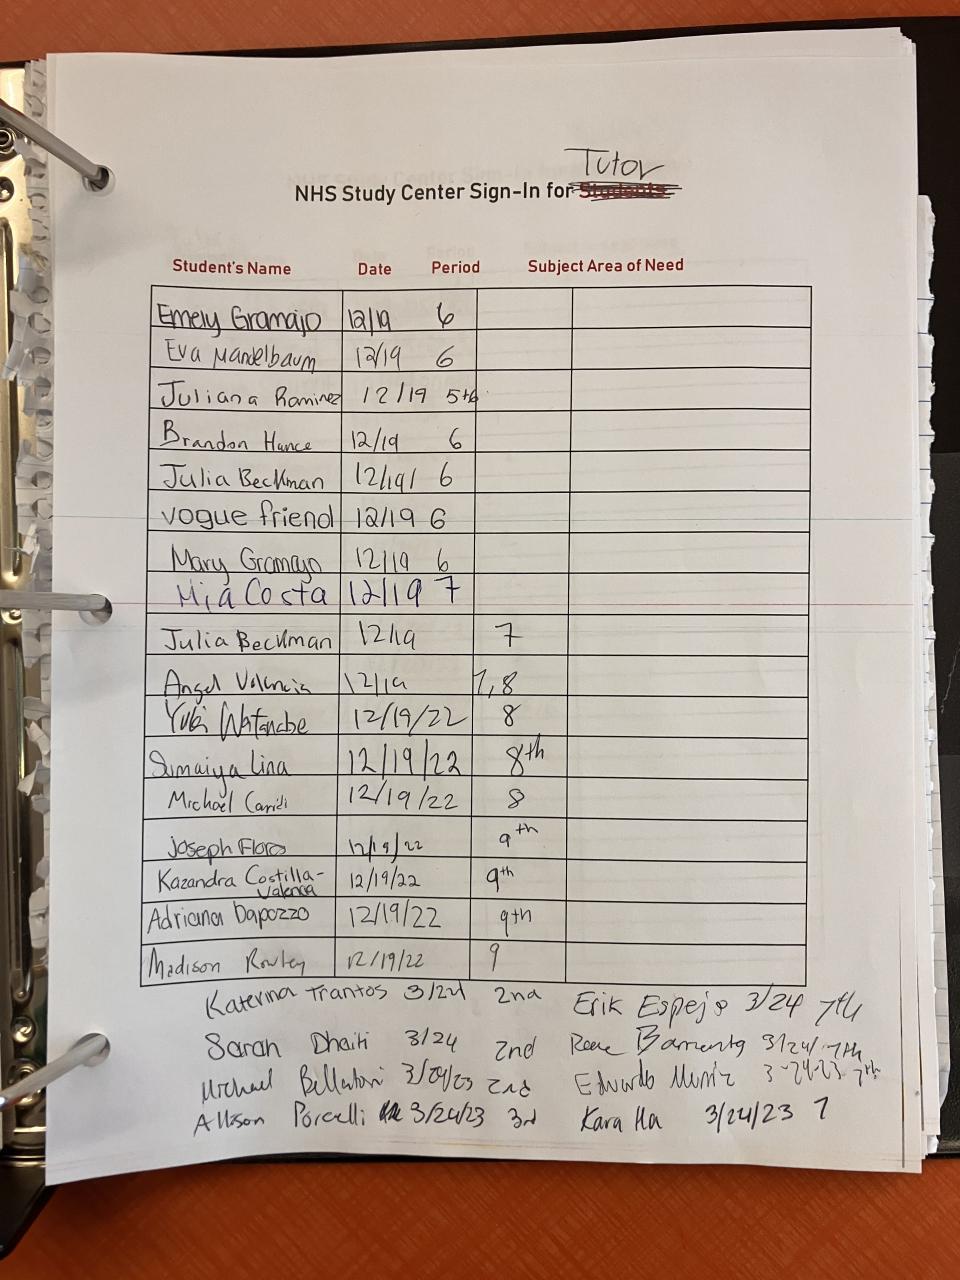 Tutor
NHS Study Center Sign-In for Students
Student's Name Date Period Subject Area of Need
Emely Gramajo 12/19 6
Eva Mandelbaum 12/19 6
Juliana Ramirez 12/19 5th
Brandon Hance 12/19 6
Julia Beckman 12/19/ 6
vogue friend 12/19 6
Mary Gramajo 12/19 6
Mia Costa 12/19 7
Julia Beckman 12/19 7
Angel Valencia 12/19 7,8
Yuki Watanabe 12/19/22 8
Sumaiya Lina 12/19/22 8th
Michael 12/19/22 8
Joseph Flores 12/19/22 9th
Kazandra Costilla-
Valencia 12/19/22 9th
Adriana Dapozzo 12/19/22 9th
Madison Rowley 12/19/22 9
Katerina Trantos 3/24 2nd Erik Espejo 3/24 7th
Sarah Dhaiti 3/24 2nd 3/24/ 7th
Michael 3/24/23 2nd Eduardo Muniz 3-24-23 7th
Allison Porcelli 3/24/23 3rd Kara Ha 3/24/23 7